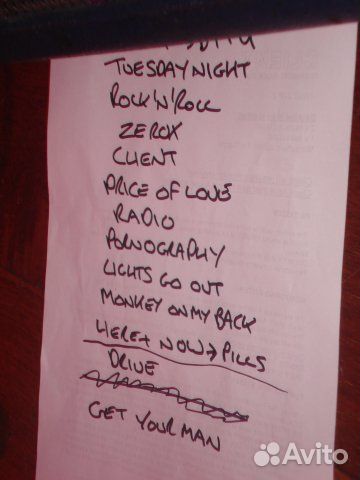 TUESDAY NIGHT
ROCK'N'ROLL
ZEROX
CLIENT
PRICE OF LOVE
RADIO
PORNOGRAPHY
LIGHTS GO OUT
MONKEY ON MY BACK
HERE + NOW → PILLS
DRIVE
GET YOUR MAN
Avito